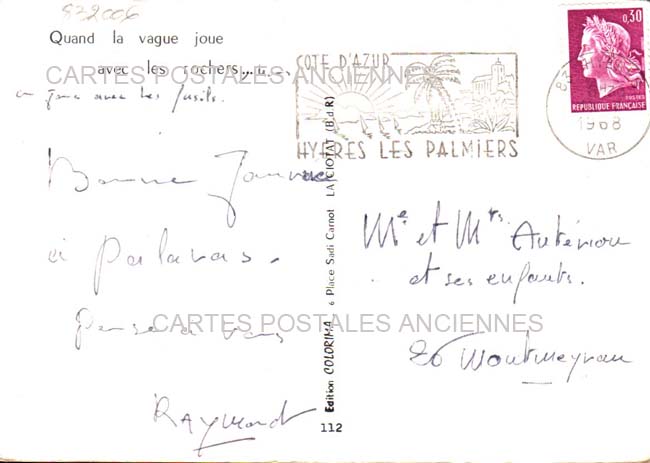 872006
Quand la vague joue
avec les rochers.......
on joue avec les fusils.
Bonne Journée
à Palavas.
Pense à vous
Raymond
CARTES POSTALES ANCIENNES
CARTES POSTALES ANCIENNES
COTE D'AZUR
HYERES LES PALMIERS
83
1968
VAR
0,30
POSTES
REPUBLIQUE FRANÇAISE
Edition COLORIMA 6 Place Sadi Carnot LA CIOTAT (B.d.R)
112
Me et Mrs Autériou
et ses enfants.
26 Montmeyran